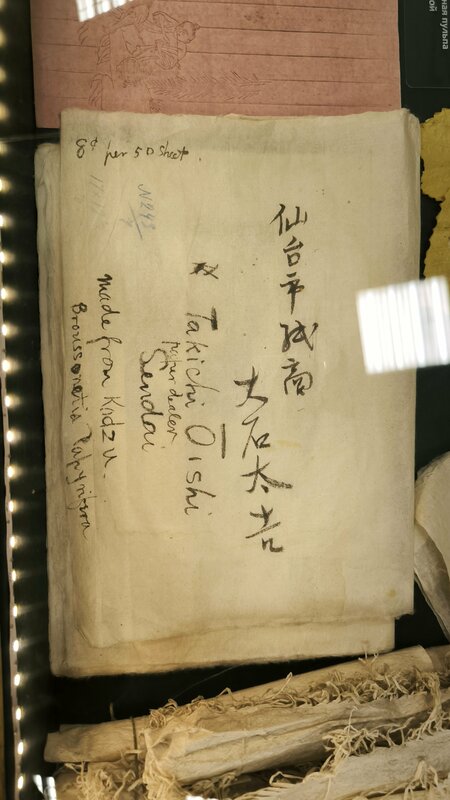 ная пульпа
ой
8¢ per 50 sheet.
N243
仙台市紙商
大石太吉
Takichi Oishi
paper dealer
Sendai
Made from Kodzu.
Broussonetia Papyrifera